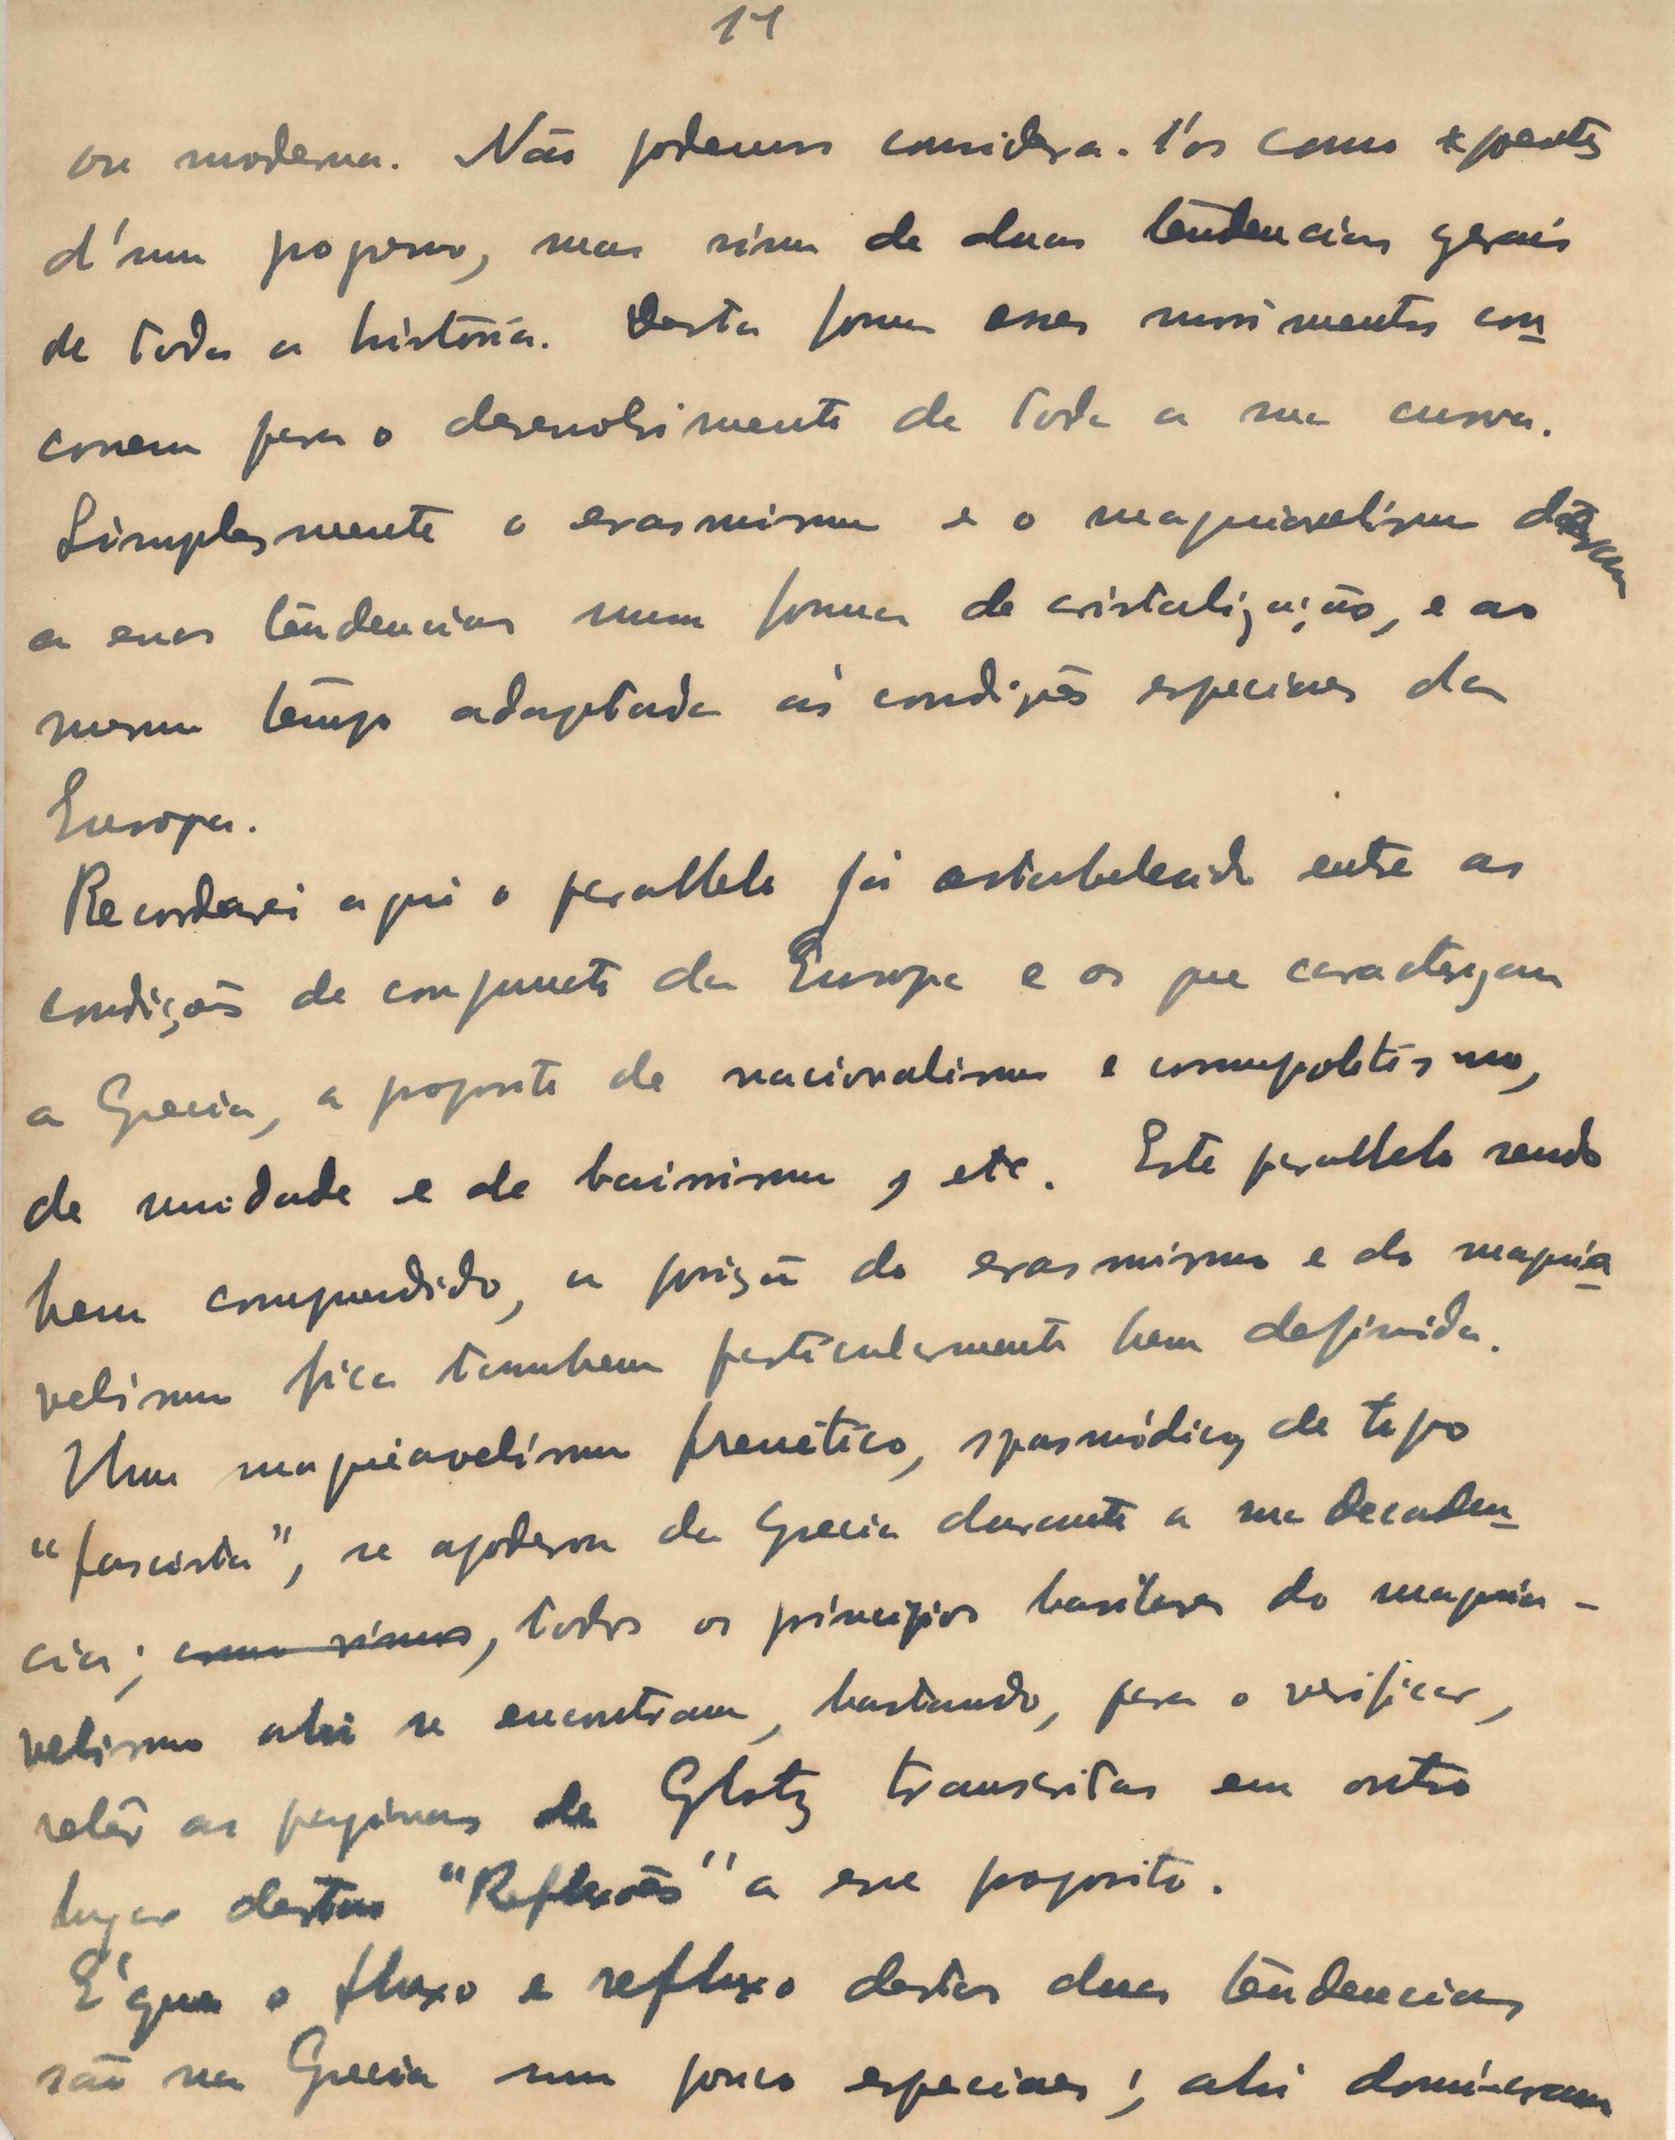 14
ou moderna. Não podemos considera-l'os como partes
d'um pogresso, mas sim de duas tendencias gerais
de toda a história. Desta forma esses movimentos con-
correm para o desenvolvimento de toda a sua curva.
Simplesmente o erasmismo e o maquiavelismo deram
a essas tendencias uma forma de cristalização, e ao
mesmo tempo adaptada ás condições especiaes da
Europa.
Recordarei aqui o parallelo já estabelecido entre as
condições de conjuncto da Europa e as que caracterizam
a Grecia, a proposito de nacionalismo e cosmopolitismo,
de unidade e de bairrismo, etc. Este parallelo sendo
bem comprendido, a posição do erasmismo e do maquia-
velismo fica tambem particularmente bem definida.
Um maquiavelismo frenético, spasmódico, de typo
"fascista", se apoderou da Grecia durante a sua decaden-
cia; como vimos, todos os principios basilares do maquia-
velismo ahi se encontram, bastando, para o verificar,
reler as paginas de Glotz transcritas em outro
lugar destas "Reflexões" a esse proposito.
É que o fluxo e refluxo destas duas tendencias
são na Grecia um pouco especiaes; ahi dominaram